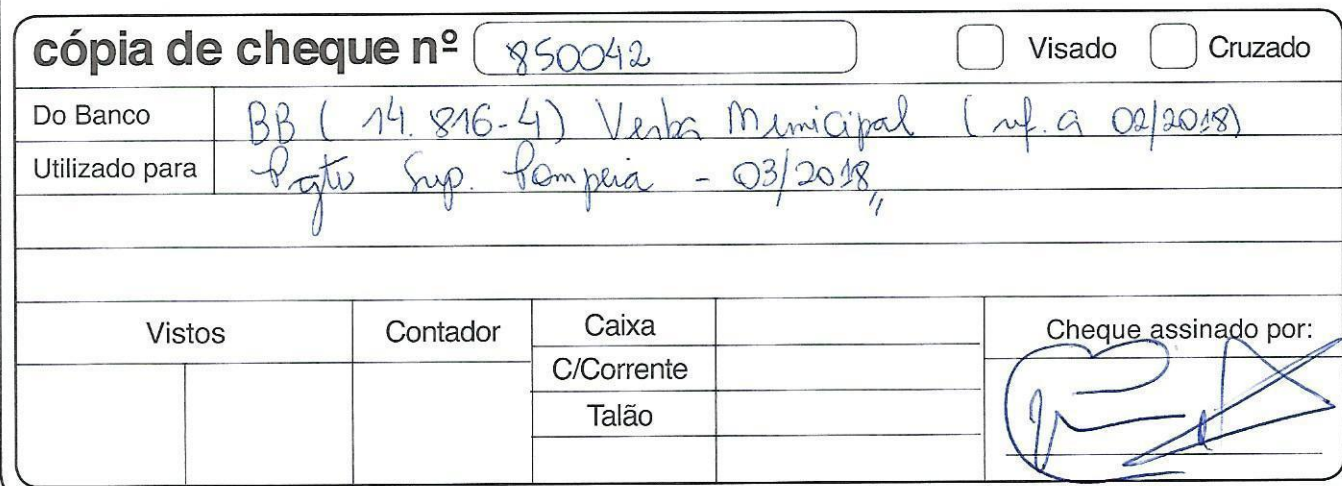 cópia de cheque nº 850042 Visado Cruzado
Do Banco BB ( 14.816-4) Verba Municipal ( ref. a 02/2018)
Utilizado para Pgto Sup. Pompeia - 03/2018,,
Vistos Contador Caixa Cheque assinado por:
C/Corrente
Talão